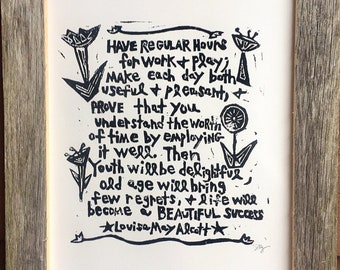 HAVE REGULAR HOURS
for WORK & PLAY;
MAKE EACH DAY both
useful & pleasant, &
PROVE that you
understand the WORTH
of time by employing
it well. Then
Youth will be delightful,
old age will bring
few regrets, & life will
become a BEAUTIFUL SUCCESS
★Louisa May Alcott★